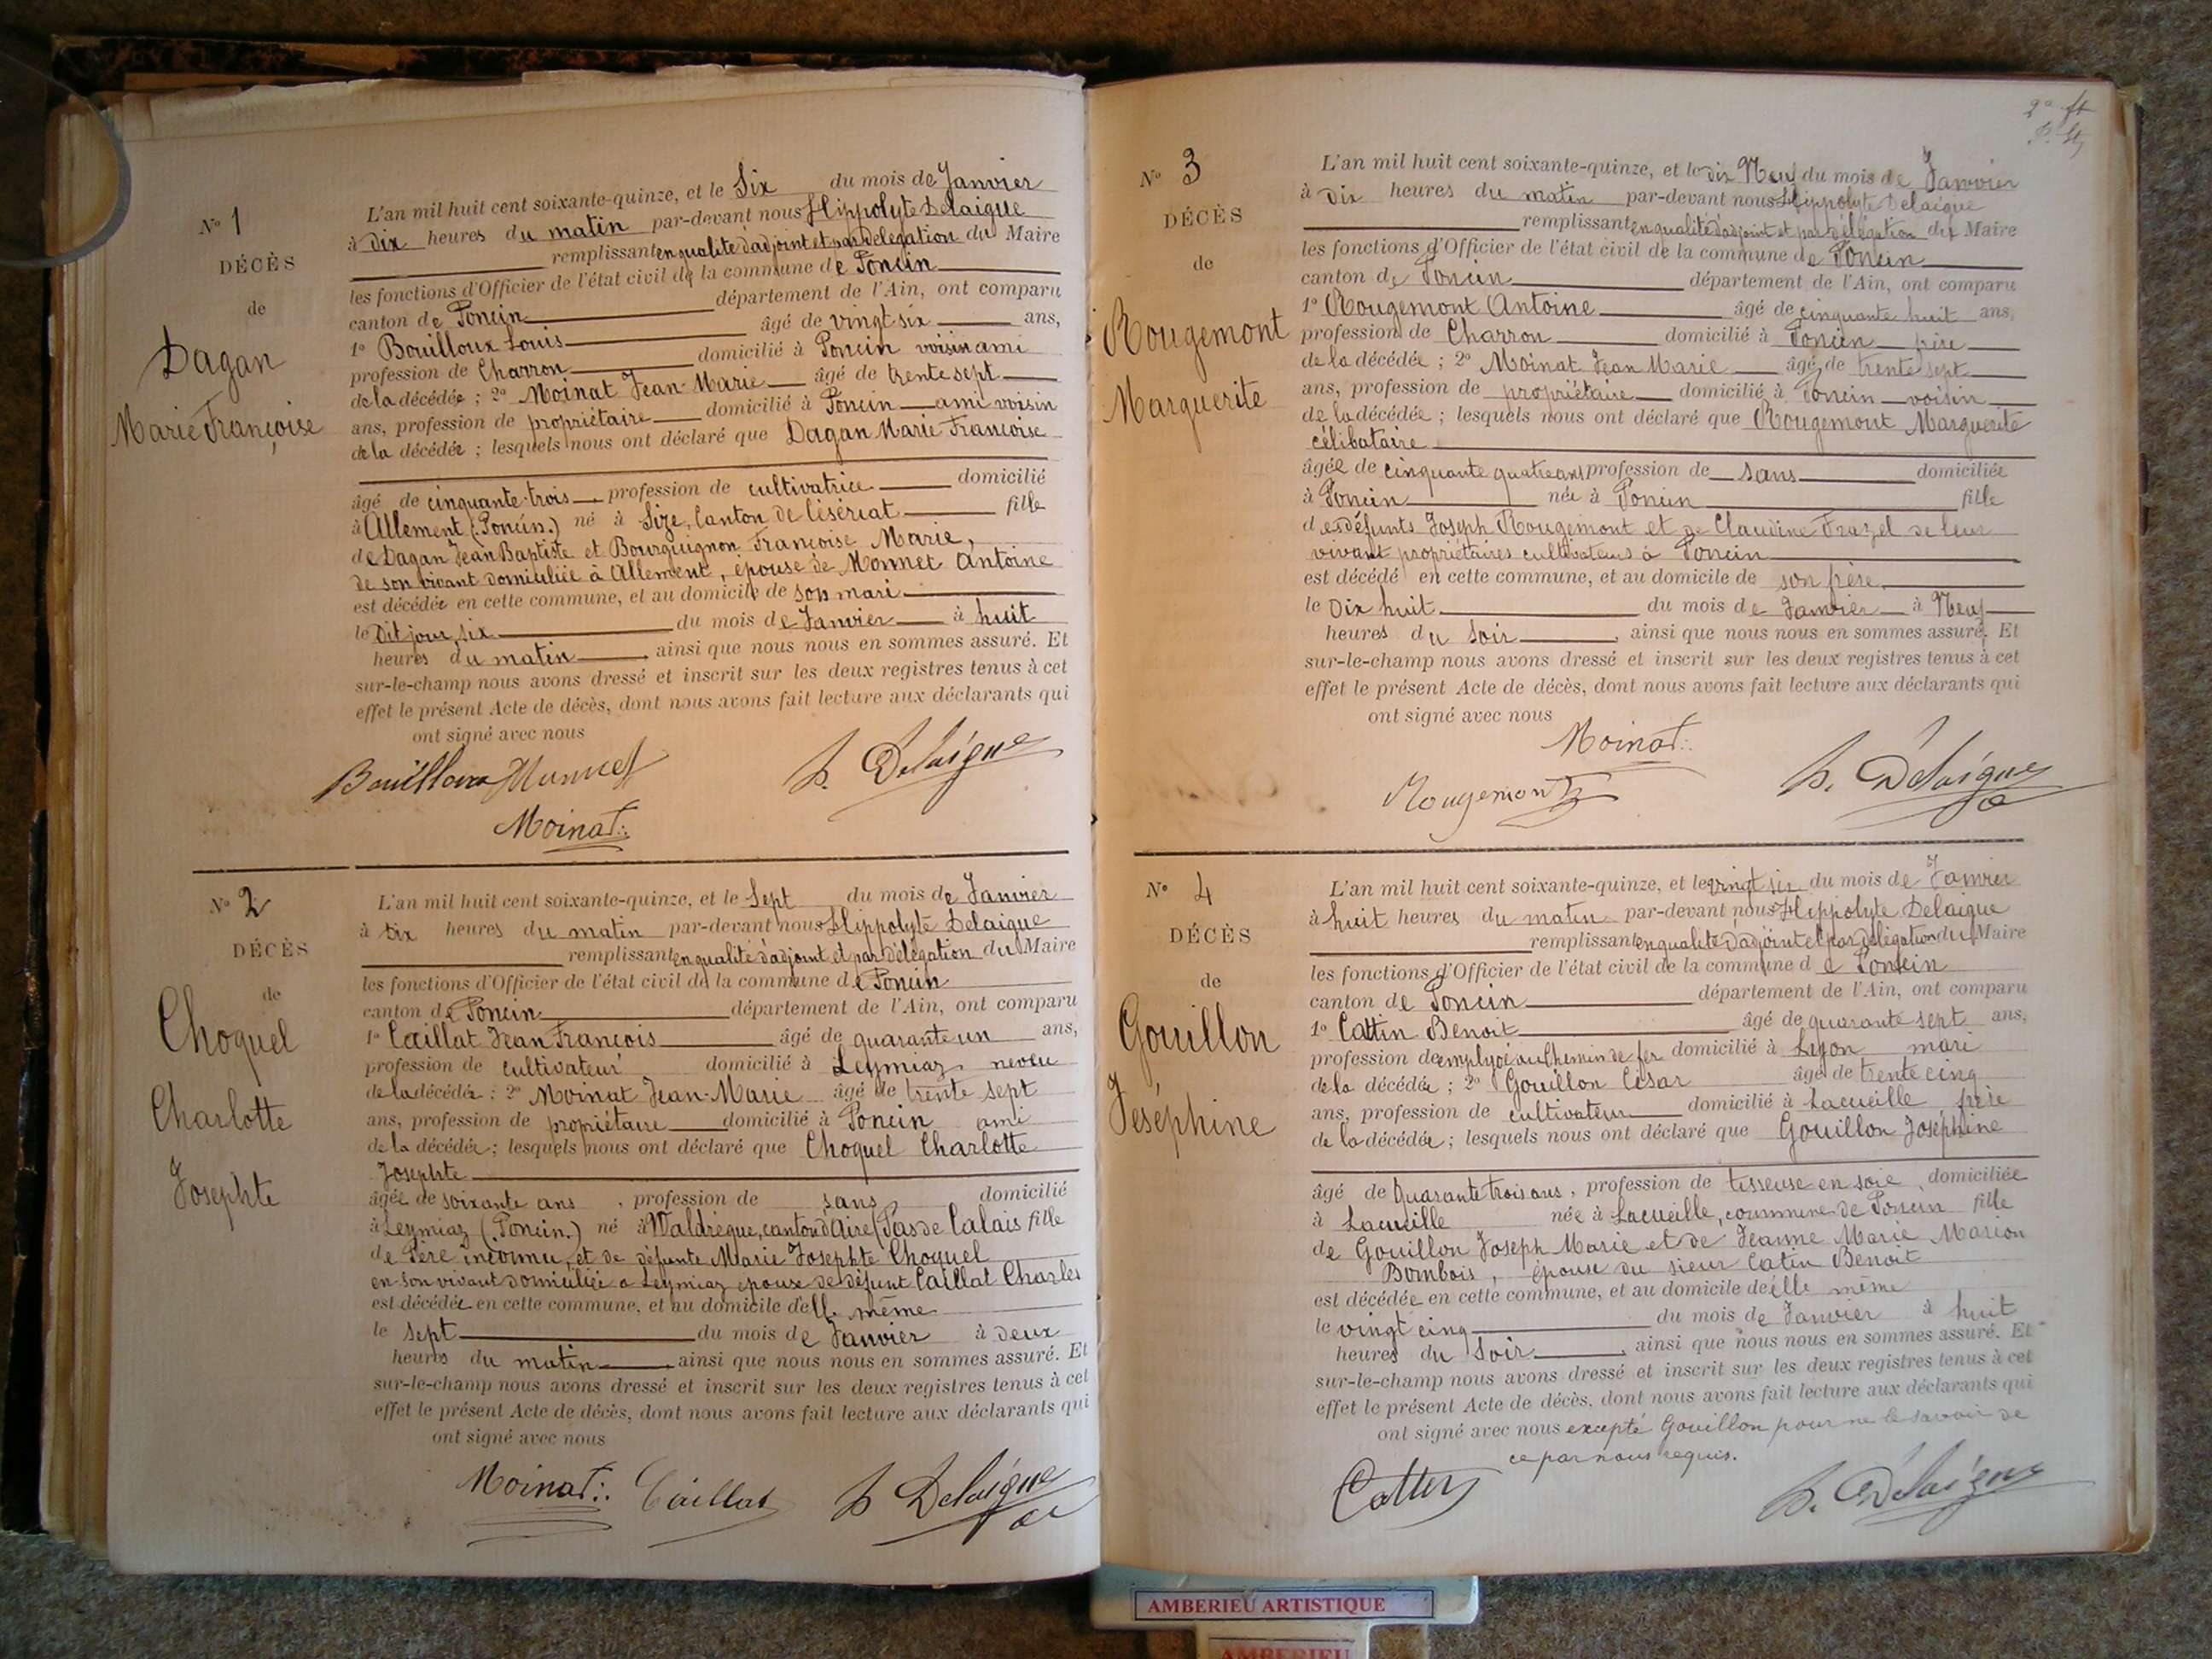 N° 1
DÉCÈS
de
Dagan
Marie Françoise
L'an mil huit cent soixante-quinze, et le Six du mois de Janvier
à Dix heures du matin par-devant nous Hippolyte Delaigue
remplissant en qualité d'adjoint et par délégation du Maire
les fonctions d'Officier de l'état civil de la commune de Poncin
canton de Poncin département de l'Ain, ont comparu
1° Bouilloux Louis âgé de vingt six ans,
profession de Charron domicilié à Poncin voisin ami
de la décédée ; 2° Moinat Jean-Marie âgé de trente sept
ans, profession de propriétaire domicilié à Poncin ami voisin
de la décédée ; lesquels nous ont déclaré que Dagan Marie Françoise
âgé de cinquante-trois profession de cultivatrice domicilié
à Allement (Poncin.) né à Size, Canton de Césériat fille
de Dagan Jean Baptiste et Bourguignon Françoise Marie,
de son vivant domiciliée à Allement, épouse de Monnet Antoine
est décédée en cette commune, et au domicile de son mari
le Dit jour, six du mois de Janvier à huit
heures du matin ainsi que nous nous en sommes assuré. Et
sur-le-champ nous avons dressé et inscrit sur les deux registres tenus à cet
effet le présent Acte de décès, dont nous avons fait lecture aux déclarants qui
ont signé avec nous
Bouilloux H. Delaigue
Moinat
N° 2
DÉCÈS
de
Choquel
Charlotte
Josephte
L'an mil huit cent soixante-quinze, et le Sept du mois de Janvier
à Dix heures du matin par-devant nous Hippolyte Delaigue
remplissant en qualité d'adjoint et par délégation du Maire
les fonctions d'Officier de l'état civil de la commune de Poncin
canton de Poncin département de l'Ain, ont comparu
1° Caillat Jean François âgé de quarante un ans,
profession de cultivateur domicilié à Leymiaz neveu
de la décédée ; 2° Moinat Jean-Marie âgé de trente sept
ans, profession de propriétaire domicilié à Poncin ami
de la décédée ; lesquels nous ont déclaré que Choquel Charlotte
Josephte
âgée de soixante ans , profession de sans domicilié
à Leymiaz (Poncin.) né à Waldrègue, canton d'Aire (Pas de Calais fille
de Père inconnu, et de défunte Marie Josephte Choquel
en son vivant domiciliée a Leymiaz épouse de défunt Caillat Charles
est décédée en cette commune, et au domicile d'elle même
le sept du mois de Janvier à Deux
heures du matin ainsi que nous nous en sommes assuré. Et
sur-le-champ nous avons dressé et inscrit sur les deux registres tenus à cet
effet le présent Acte de décès, dont nous avons fait lecture aux déclarants qui
ont signé avec nous
Moinat Caillat H Delaigue
N° 3
DÉCÈS
de
Rougemont
Marguerite
L'an mil huit cent soixante-quinze, et le dix Neuf du mois de Janvier
à Dix heures du matin par-devant nous Hippolyte Delaigue
remplissant en qualité d'adjoint et par délégation du Maire
les fonctions d'Officier de l'état civil de la commune de Poncin
canton de Poncin département de l'Ain, ont comparu
1° Rougemont Antoine âgé de cinquante huit ans,
profession de Charron domicilié à Poncin frère
de la décédée ; 2° Moinat Jean Marie âgé de trente sept
ans, profession de propriétaire domicilié à Poncin voisin
de la décédée ; lesquels nous ont déclaré que Rougemont Marguerite
célibataire
âgée de cinquante quatre ans profession de sans domiciliée
à Poncin née à Poncin fille
des défunts Joseph Rougemont et de Claudine Frazel de leur
vivant propriétaires cultivateurs à Poncin
est décédé en cette commune, et au domicile de son frère
le Dix huit du mois de Janvier à Neuf
heures du Soir ainsi que nous nous en sommes assuré. Et
sur-le-champ nous avons dressé et inscrit sur les deux registres tenus à cet
effet le présent Acte de décès, dont nous avons fait lecture aux déclarants qui
ont signé avec nous
Moinat
Rougemont H. Delaigue
N° 4
DÉCÈS
de
Gouillon
Joséphine
L'an mil huit cent soixante-quinze, et le vingt six du mois de Janvier
à huit heures du matin par-devant nous Hippolyte Delaigue
remplissant en qualité D'adjoint et par délégation du Maire
les fonctions d'Officier de l'état civil de la commune de Poncin
canton de Poncin département de l'Ain, ont comparu
1° Cattin Benoit âgé de quarante sept ans,
profession de employé au Chemin de fer domicilié à Lyon mari
de la décédée ; 2° Gouillon César âgé de trente cinq
ans, profession de cultivateur domicilié à Lacueille frère
de la décédée ; lesquels nous ont déclaré que Gouillon Joséphine
âgé de Quarante trois ans, profession de tisseuse en soie, domiciliée
à Lacueille née à Lacueille, commune de Poncin fille
de Gouillon Joseph Marie et de Jeanne Marie Marion
Bombois, épouse du sieur Catin Benoit
est décédée en cette commune, et au domicile de elle même
le vingt cinq du mois de Janvier à huit
heures du Soir ainsi que nous nous en sommes assuré. Et
sur-le-champ nous avons dressé et inscrit sur les deux registres tenus à cet
effet le présent Acte de décès, dont nous avons fait lecture aux déclarants qui
ont signé avec nous excepté Gouillon pour ne le savoir de
ce par nous requis.
Cattin H. Delaigue
AMBERIEU ARTISTIQUE
AMBERIEU